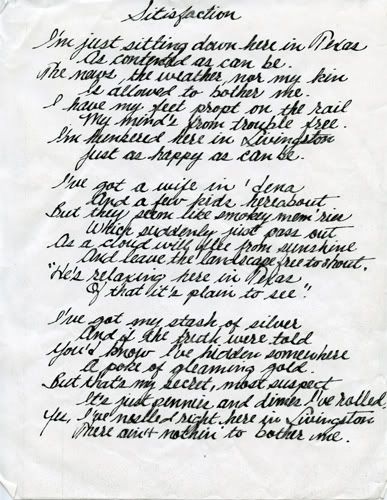 Sitisfaction
I'm just sitting down here in Texas
As contented as can be.
The news, the weather, nor my kin
Is allowed to bother me.
I have my feet propt on the rail
My mind's from trouble free.
I'm hunkered here in Livingston
Just as happy as can be.
I've got a wife in 'dena
And a few kids hereabout.
But they seem like smokey mem'ries
Which suddenly just pass out
As a cloud will flee from sunshine
And leave the landscape free to shout,
"He's relaxing here in Texas
Of that it's plain to see".
I've got my stash of silver
And if the truth were told
You'd know I've hidden somewhere
A poke of gleaming gold.
But that's my secret, most suspect
It's just pennies and dimes I've rolled.
Yes, I've nestled right here in Livingston
There ain't nothin to bother me.